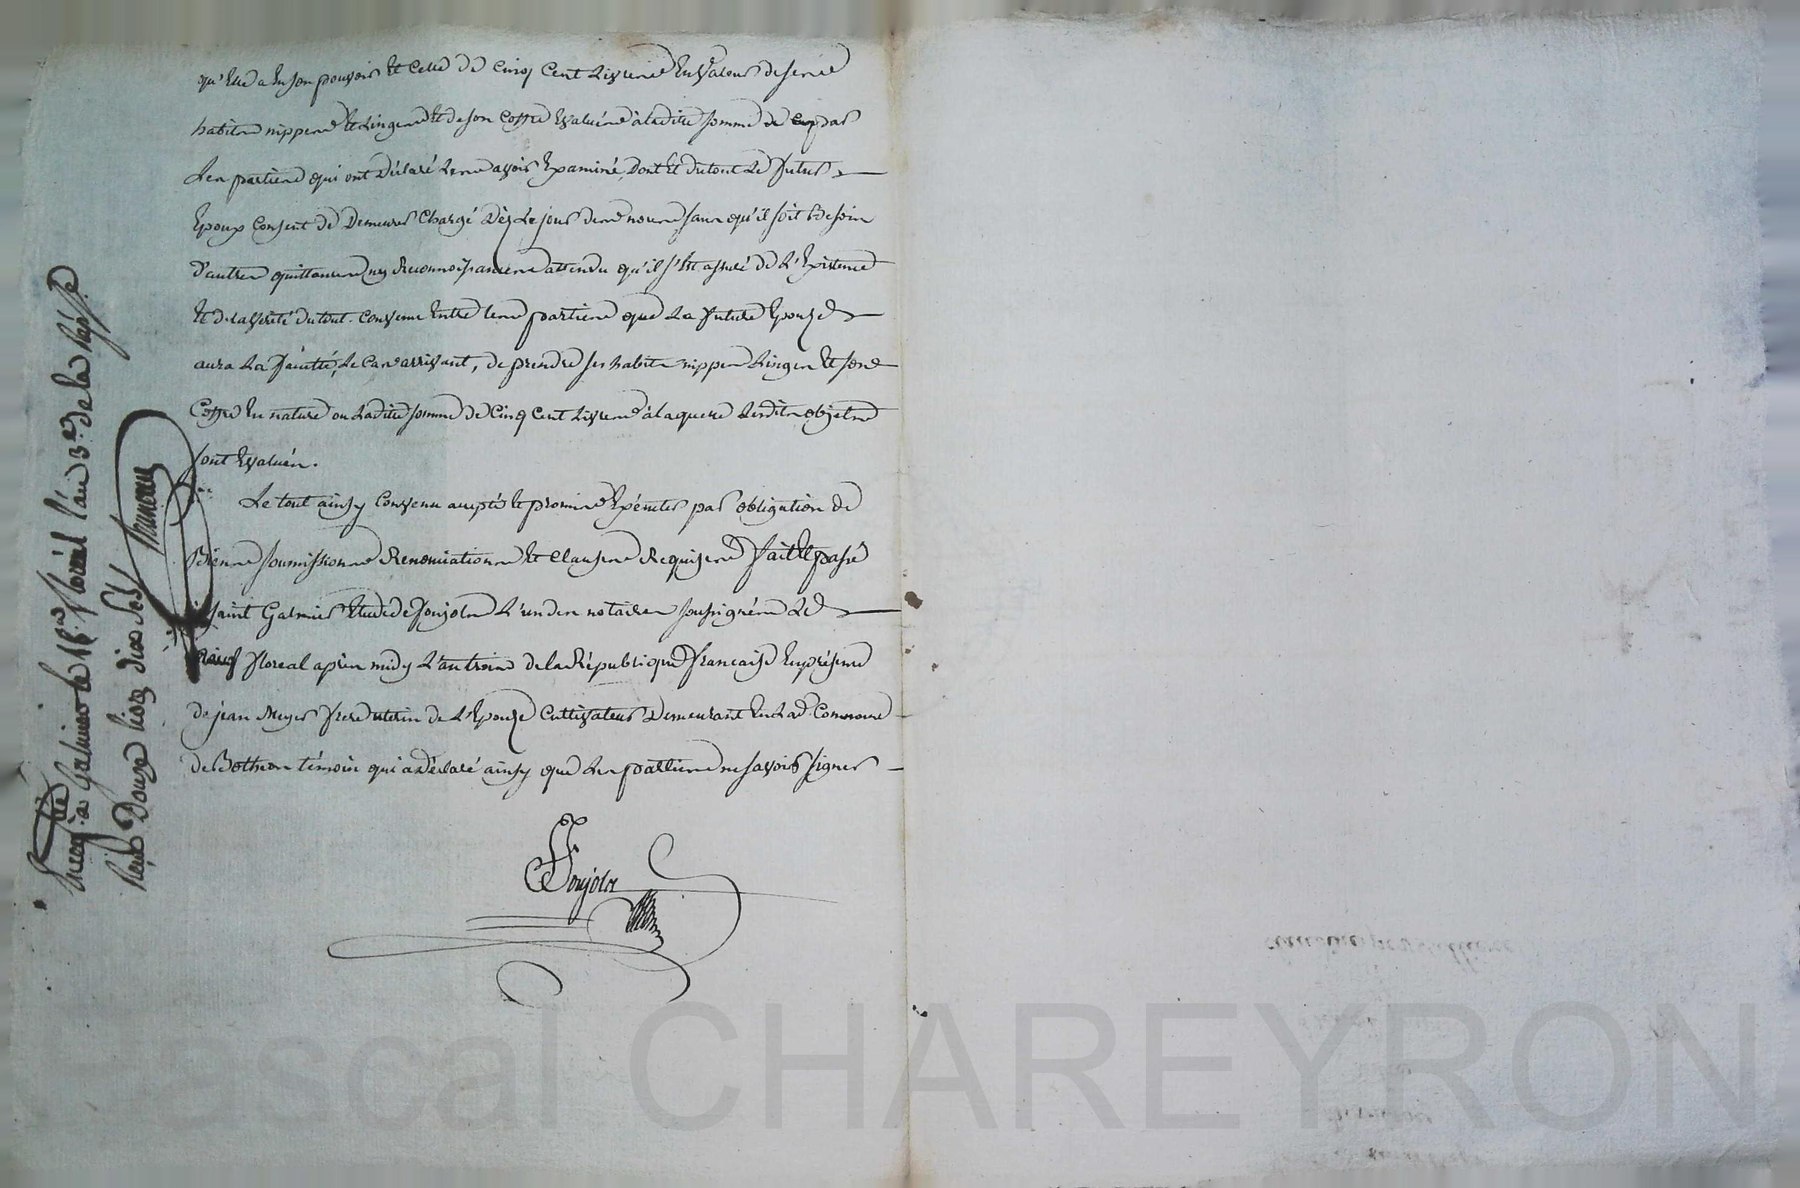 qu'Elle a En Son pouvoir Et Celle de Cinq Cent Livres En Valeur de ses
habits nippes Et Linges Et de son Coffre Evalués à ladite somme de par
Les parties qui ont déclaré Les avoir Examiné, Dont Et du tout Le futur
Epoux Consent de Demeurer Chargé Dès Le jour des noces sans qu'il soit Besoin
d'autres quittances ny Reconnoissances attendu qu'il s'Est assuré de L'Existence
Et de la Verité du tout. Convenu Entre les parties que La future Epouze
aura La faculté, Le Cas arrivant, de prendre ses habits nippes Linges Et son
Coffre En nature ou Ladite somme de Cinq Cent Livres à laquelle Lesdits objets
sont Evalués.
Le tout ainsy Convenu accepté Et promis Exécuter par obligation de
Biens soumissions Renonciations Et Clauses Requizes fait Et passé
à Saint Galmier Etude de Poujols L'un des notaires soussignés Le
floreal après midy L'an trois de la République française En présence
de jean Meyer frere uterin de L'Epouze Cultivateur Demeurant En Lad. Commune
de Botheon témoin qui a déclaré ainsy que Les parties ne savoir signer
Poujols
Enregité à Galmier le 16 floréal l'an 3e. de la Rép.
Reçu Douze livres dix sols
Pascal CHAREYRON